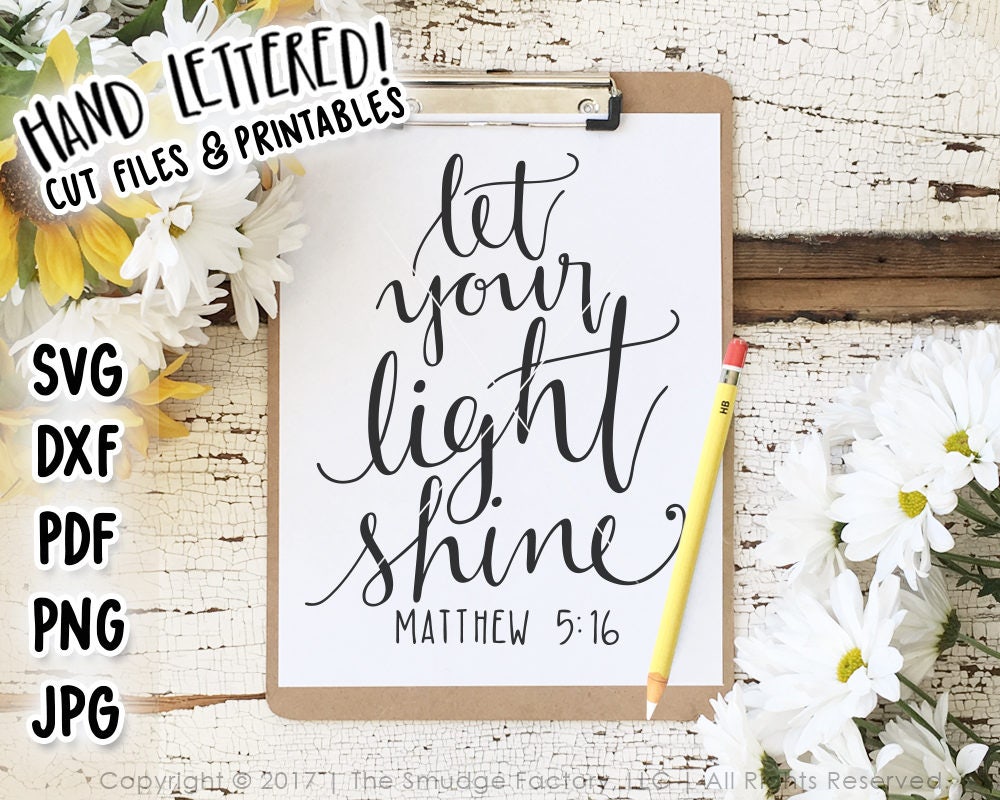 HAND LETTERED!
CUT FILES & PRINTABLES
let
your
light
shine
MATTHEW 5:16
SVG
DXF
PDF
PNG
JPG
HB
Copyright © 2017 | The Smudge Factory, LLC | All Rights Reserved